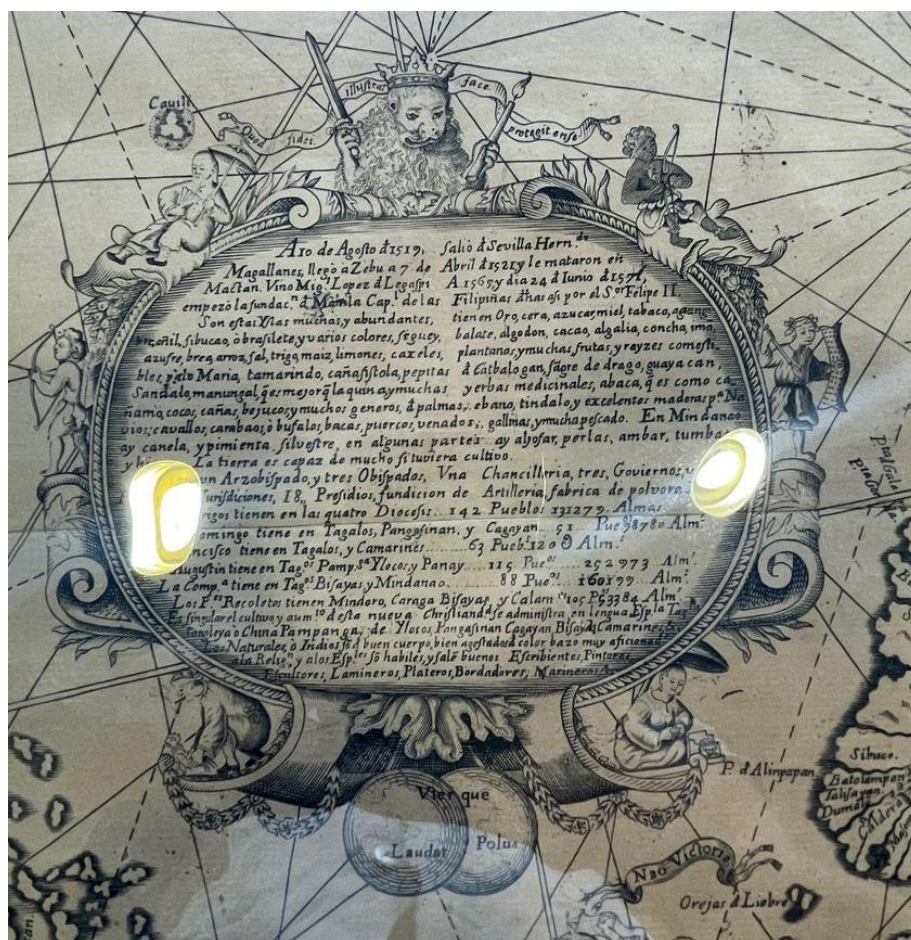 Cauili
illustrat face
Quod fidei
protegit ense
A 10 de Agosto đ 1519, Salio đ Sevilla Hern.do
Magallanes, llego à Zebu a 7 de Abril đ 1521 y le mataron en
Mactan. Vino Mig.l Lopez đ Legaspi A 1565 y dia 24 đ Iunio đ 1571,
empezò la fundac.n đ Manila Cap.l de las Filipinas đhas asi por el S.or Felipe II.
Son estas Yslas muchas, y abundantes, tienen Oro, cera, azucar, miel, tabaco,
añil, sibucao, ò brasilete, y varios colores, balate, algodon, cacao, algalia, concha,
azufre, brea, arroz, sal, trigo, maiz, limones, caxeles, plantanos, y muchas frutas, y rayzes comesti
bles, palo Maria, tamarindo, cañafistola, pepitas đ Catbalogan, sãgre de drago, guayacan,
Sandalo, manungal, q̃ es mejor q̃ la quina, y muchas yerbas medicinales, abaca, q̃ es como ca
ñamo, cocos, cañas, bejucos, y muchos generos, đ palmas, ebano, tindalo, y excelentes maderas p.a Na
vios; cavallos, carabaos, ò bufalos, bacas, puercos, venados, gallinas, y mucha pescado. En Mindanao
ay canela, y pimienta, silvestre, en algunas partes ay aljofar, perlas, ambar, tumbaga
La tierra es capaz de mucho si tuviera cultivo.
un Arzobispado, y tres Obispados, Vna Chancilleria, tres, Goviernos, y
Iurisdiciones, 18,, Presidios, fundicion de Artilleria, fabrica de polvora.
tienen en las quatro Diocesis... 142 Pueblos 131279. Almas
Domingo tiene en Tagalos, Pangasinan, y Cagayan... 51 Pue.os 8780 Alm.s
Francisco tiene en Tagalos, y Camarines........ 63 Pueb.s 120 Alm.s
Augustin tiene en Tag.os Pamp.ga Ylocos, y Panay... 115 Pue.os... 252973 Alm.s
La Comp.a tiene en Tag.os Bisayas, y Mindanao........ 88 Pue.os... 160199... Alm.s
Los P.es Recoletos tienen Mindoro, Caraga Bisayas, y Calam.es 105 P.os 53384 Alm.s
Es singular el cultivo, y aum.to desta nueva Christiand.d se administra, en lengua Esp.la
Sangleya ò China Pampanga, de Ylocos, Pangasinan Cagayan Bisayas, Camarines
Los Naturales, ò Indios sõ đ buen cuerpo, bien agestados đ color bazo muy aficionados
a la Relig.n y a los Esp.les sõ habiles, y salẽ buenos Escribientes, Pintores
Escultores, Lamineros, Plateros, Bordadores, Marineros
Sibuco.
P. đ Alinpapan
Batolampon
Talisayan
Dumali
Caldera
Vterque
Laudat Polus
Nao Victoria
Orejas đ Liebre